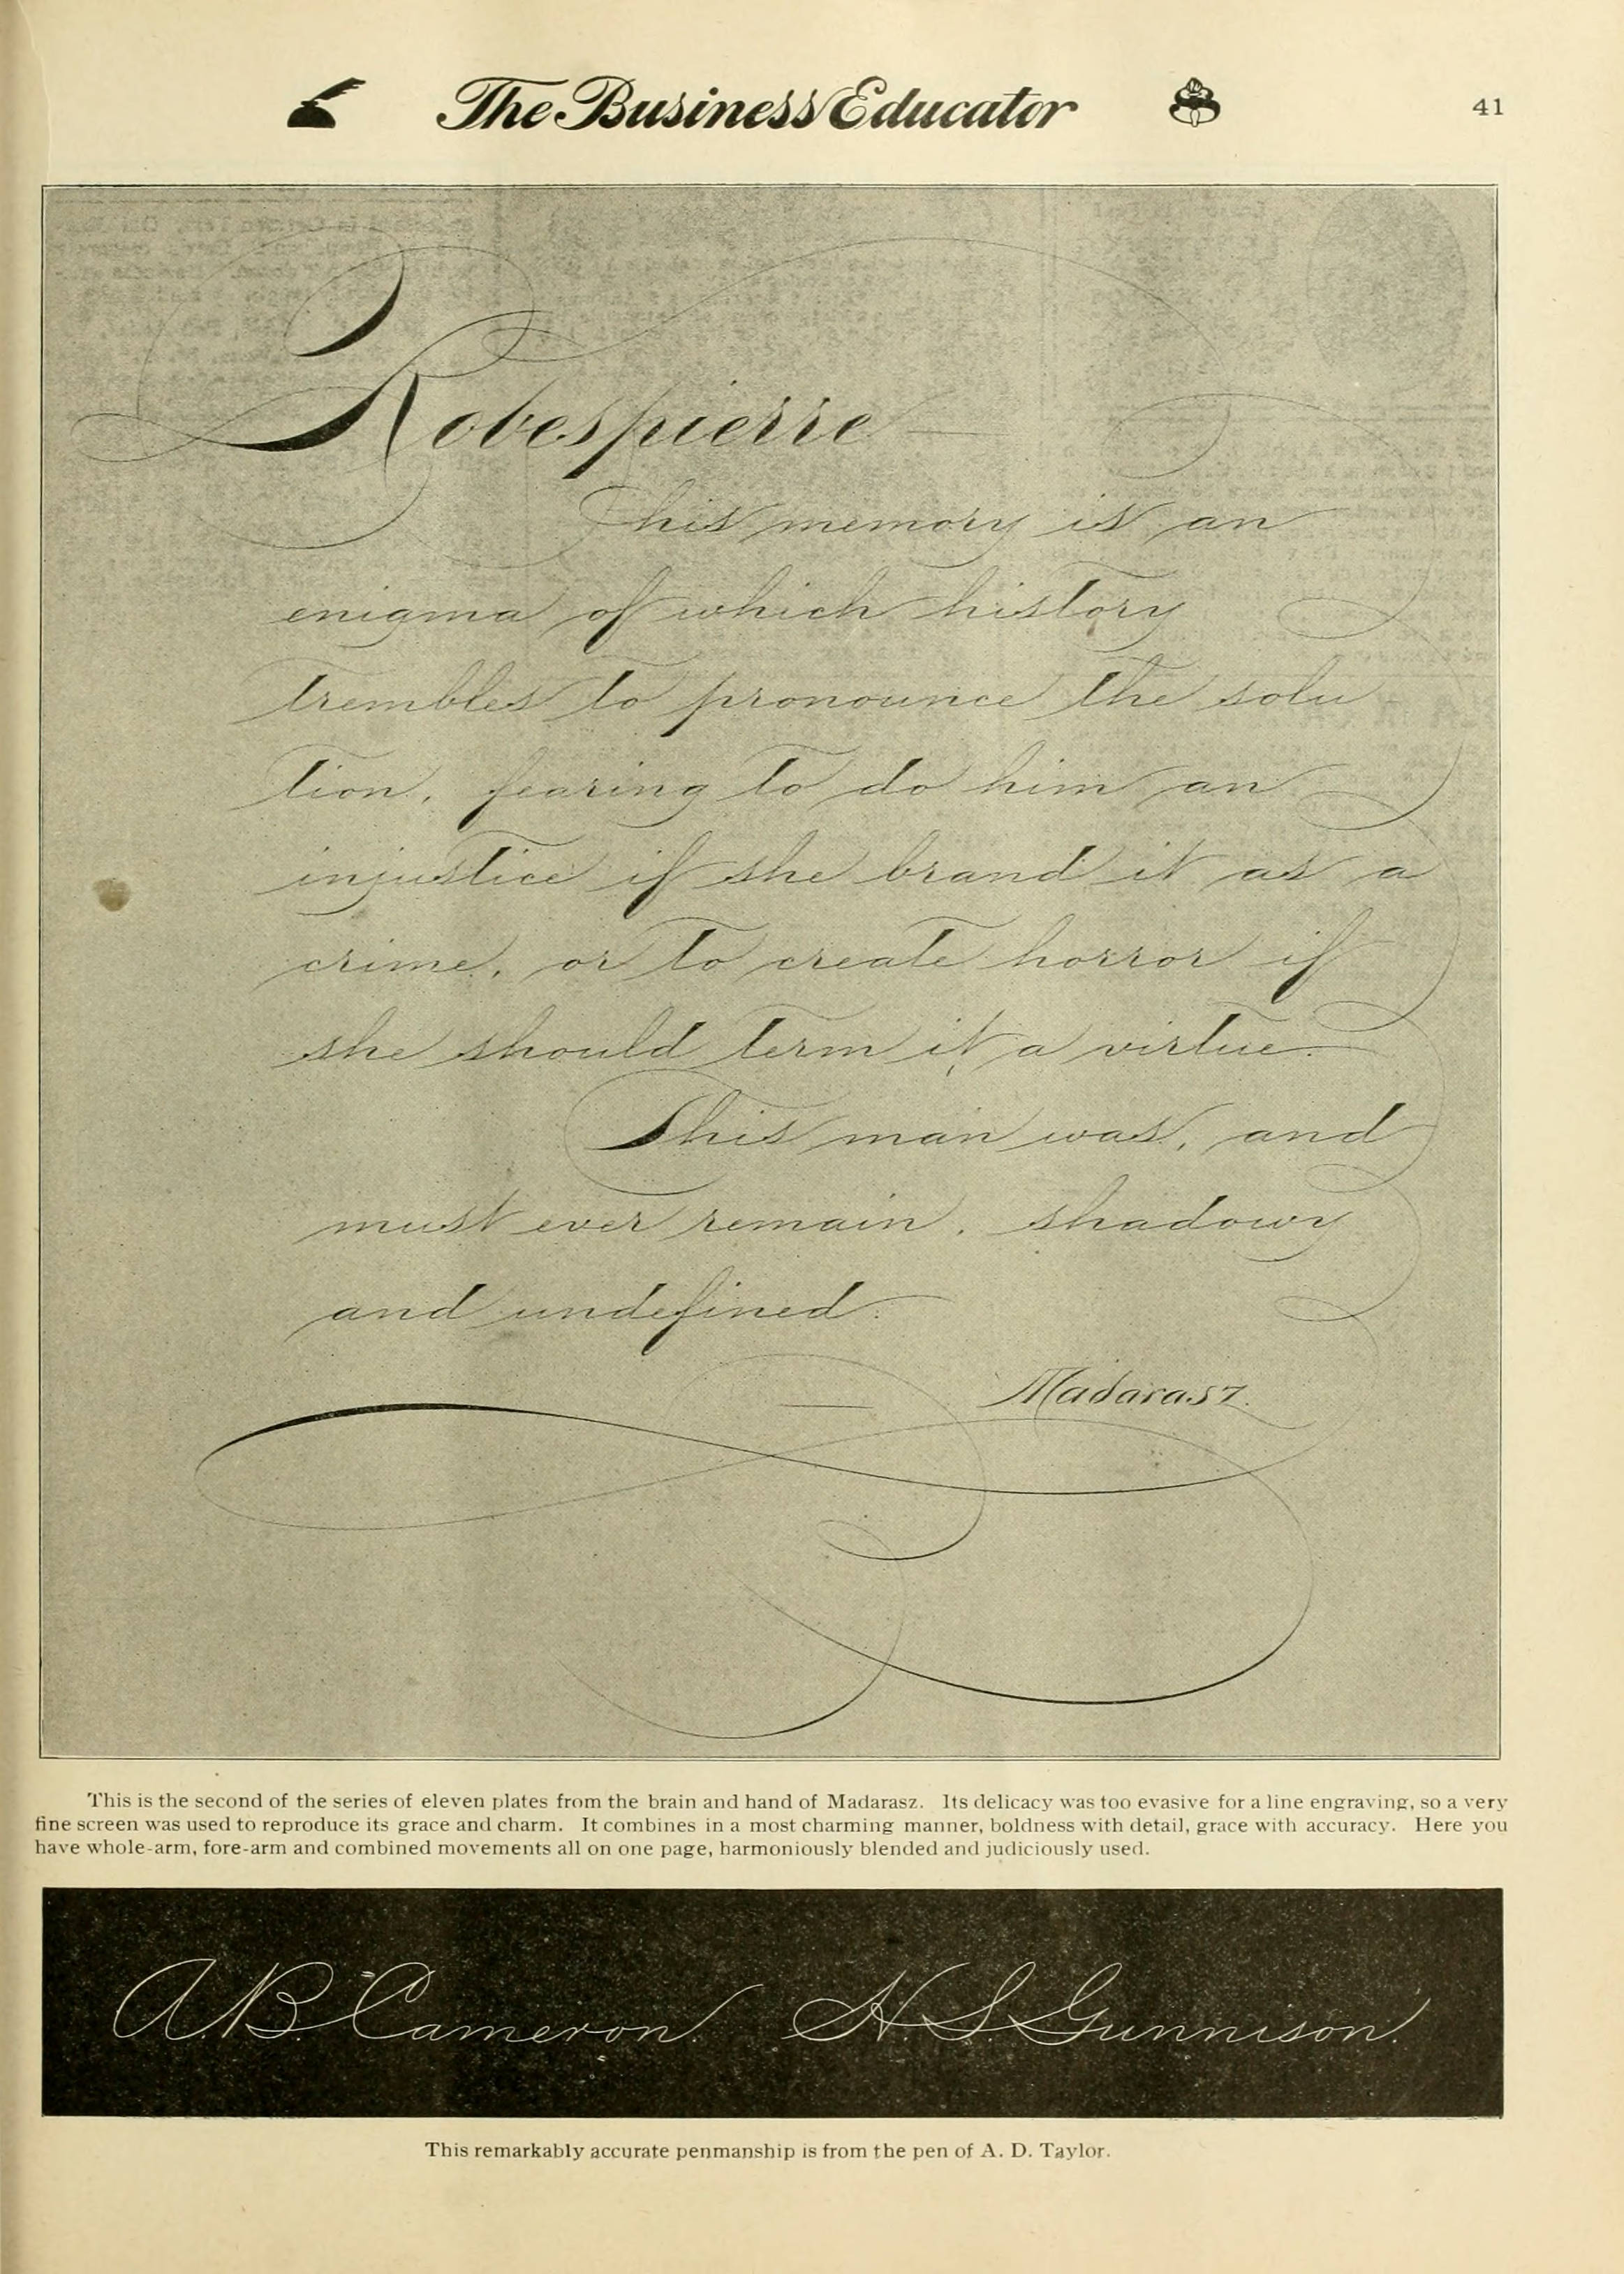 The Business Educator
41
Robespierre —
his memory is an
enigma of which history
trembles to pronounce the solu
tion, fearing to do him an
injustice if she brand it as a
crime, or to create horror if
she should term it a virtue.
This man was, and
must ever remain, shadowy
and undefined.
Madarasz.
This is the second of the series of eleven plates from the brain and hand of Madarasz. Its delicacy was too evasive for a line engraving, so a very
fine screen was used to reproduce its grace and charm. It combines in a most charming manner, boldness with detail, grace with accuracy. Here you
have whole-arm, fore-arm and combined movements all on one page, harmoniously blended and judiciously used.
A.B. Cameron. H.S. Gunnison.
This remarkably accurate penmanship is from the pen of A. D. Taylor.